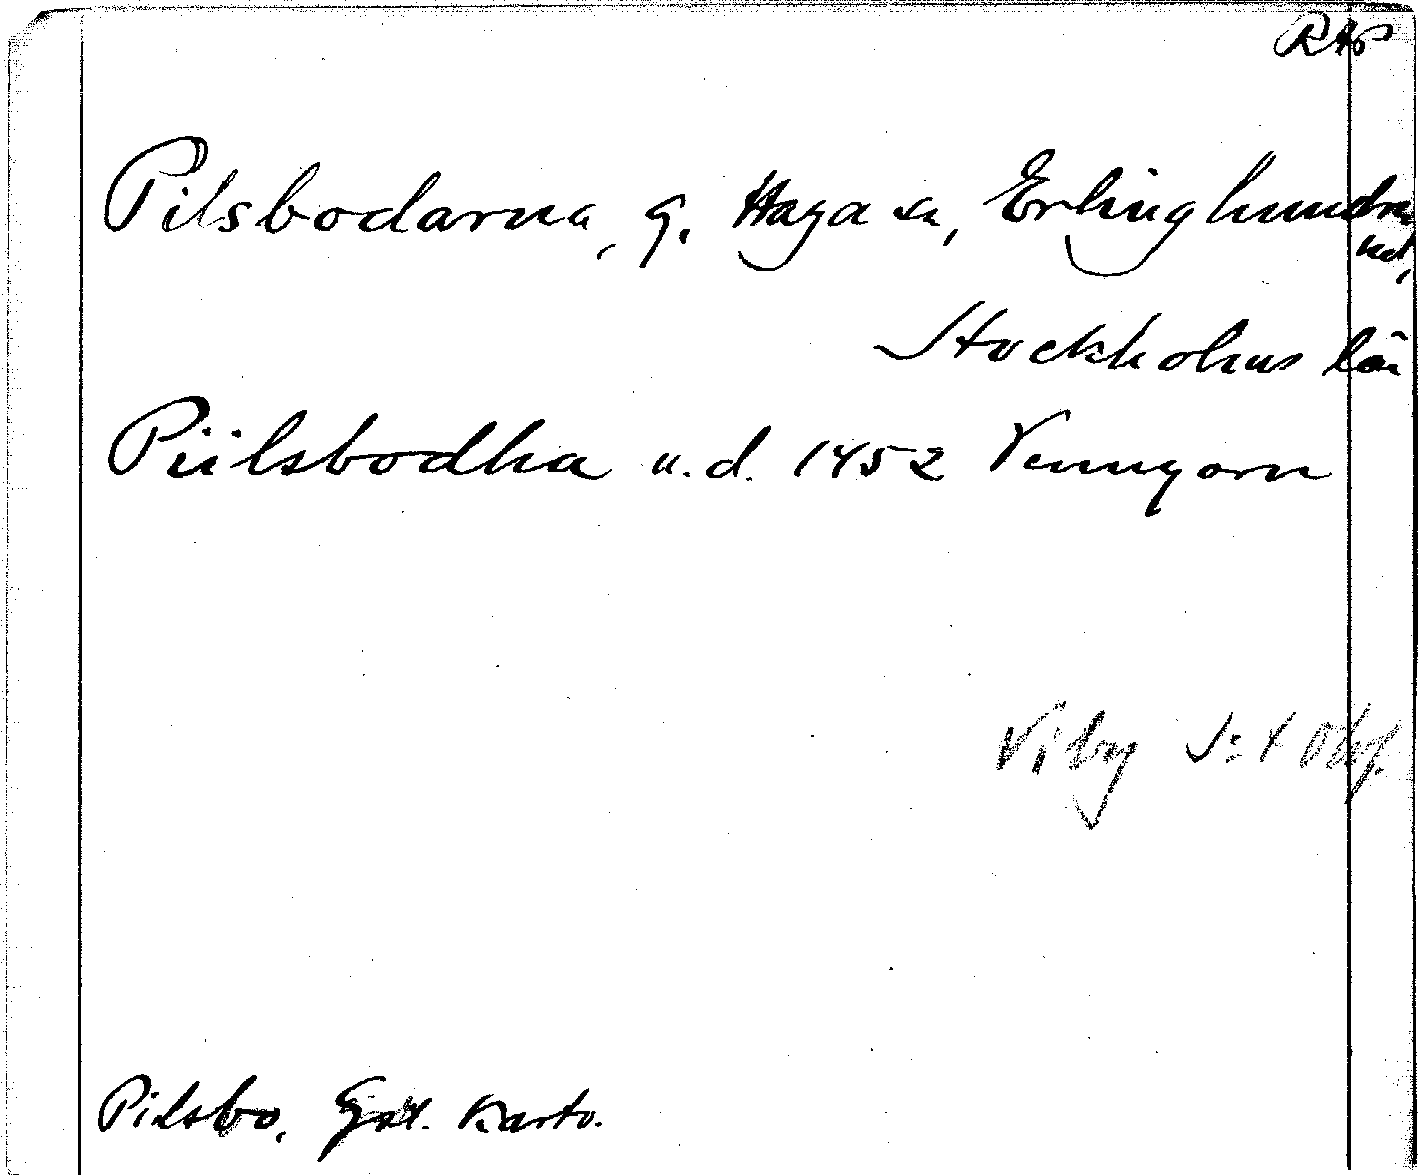 RAP
Pilsbodarna, g. Haga sn, Erlinghundra
hd,
Stockholms län
Piilsbodha u.d. 1452 Venngarn
Viby
Pilsbo, Gst. Karto.